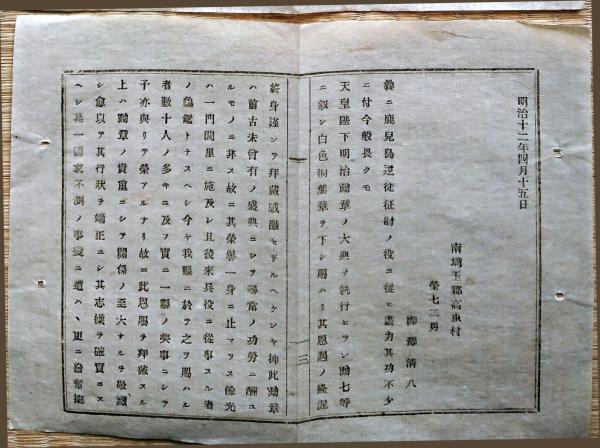 明治十二年四月十五日
南埼玉郡高虫村
榮七二男
柳澤清八
曩ニ鹿兒島逆徒征討ノ役ニ從ヒ盡力其功不少
ニ付今般畏クモ
天皇陛下明治勳章ノ大典ヲ執行セラレ勳七等
ニ叙シ白色桐葉章ヲ下シ賜ハリ其恩遇ノ隆渥
終身謹シテ拜戴感激セサルヘケンヤ抑此勳章
ハ前古未曾有ノ盛典ニシテ尋常ノ功勞ニ酬ユ
ルモノニ非ス故ニ其榮譽一身ニ止マラス餘光
ハ一門閭里ニ施及シ且後來兵役ニ從事スル者
ノ龜鑑トナスヘシ今ヤ我縣ニ於テ之ヲ賜ハル
者數十人ノ多キニ及フ實ニ一縣ノ美事ニシテ
予亦與リテ榮アルナリ故ニ此恩賜ヲ拜戴スル
上ハ勳章ノ貴重ニシテ關係ノ至大ナルヲ敬識
シ愈以テ其行狀ヲ端正ニシ其志操ヲ確實ニス
ヘシ萬一國家不測ノ事變ニ遭ハヽ更ニ發奮挺
三